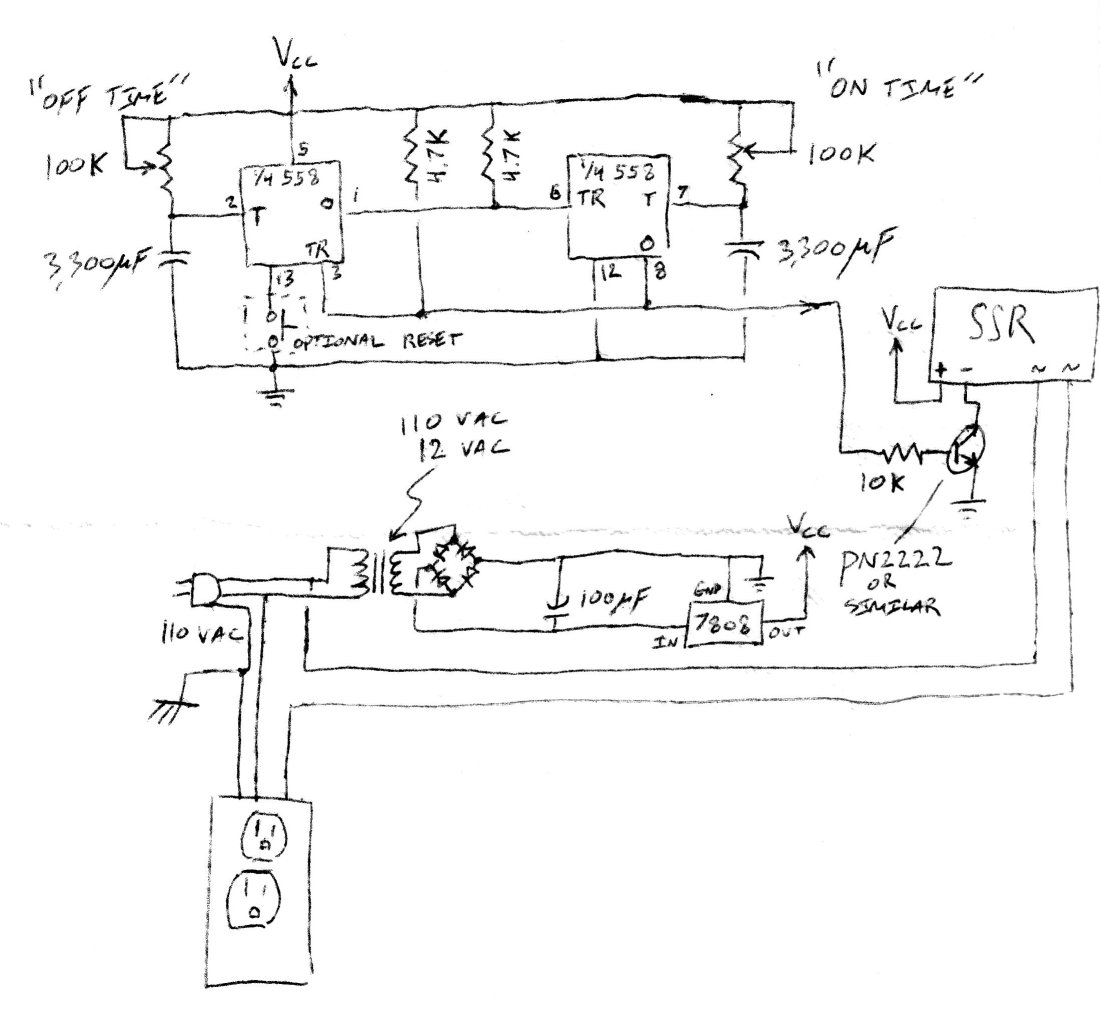 Vcc
"OFF TIME"
"ON TIME"
100K
5
1/4 558
2
T
O
1
TR
13
3
3,300µF
4.7K
4.7K
6
1/4 558
TR
T
7
O
12
8
100K
3,300µF
OPTIONAL RESET
Vcc
SSR
+
-
~
~
10K
PN2222
OR
SIMILAR
110 VAC
12 VAC
110 VAC
100µF
Vcc
GND
7808
IN
OUT